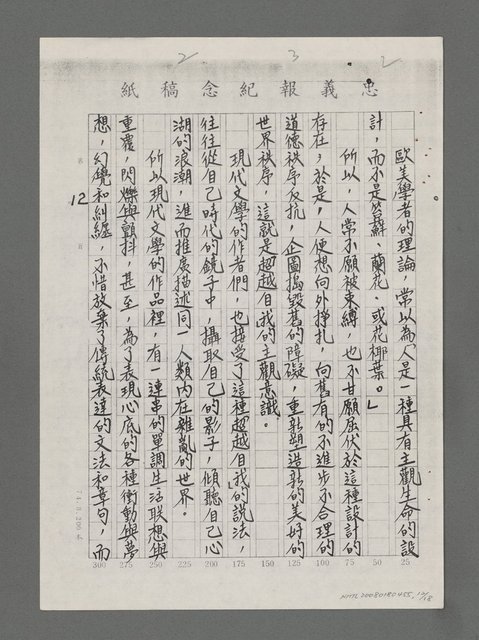 2 3 2
忠義報紀念稿紙
歐美學者的理論，常以為人是一種具有主觀生命的設
計，而不是苔蘚、蘭花、或花椰菜。」
所以，人常不願被束縛，也不甘願屈伏於這種設計的
存在，於是，人便想向外掙扎，向舊有的不進步不合理的
道德秩序反抗，企圖搗毀舊的障礙，重新塑造新的美好的
世界秩序，這就是超越自我的主觀意識。
現代文學的作者們，也接受了這種超越自我的說法，
往往從自己時代的鏡子中，攝取自己的影子，傾聽自己心
湖的浪潮，進而推廣描述同一人類內在雜亂的世界。
所以現代文學的作品裡，有一連串的單調生活聯想與
重覆，閃爍與顫抖，甚至，為了表現心底的各種衝動與夢
想，幻覺和糾纏，不惜放棄了傳統表達的文法和章句，而
12
25 50 75 100 125 150 175 200 225 250 275 300
NMTL20080180455, 12/18